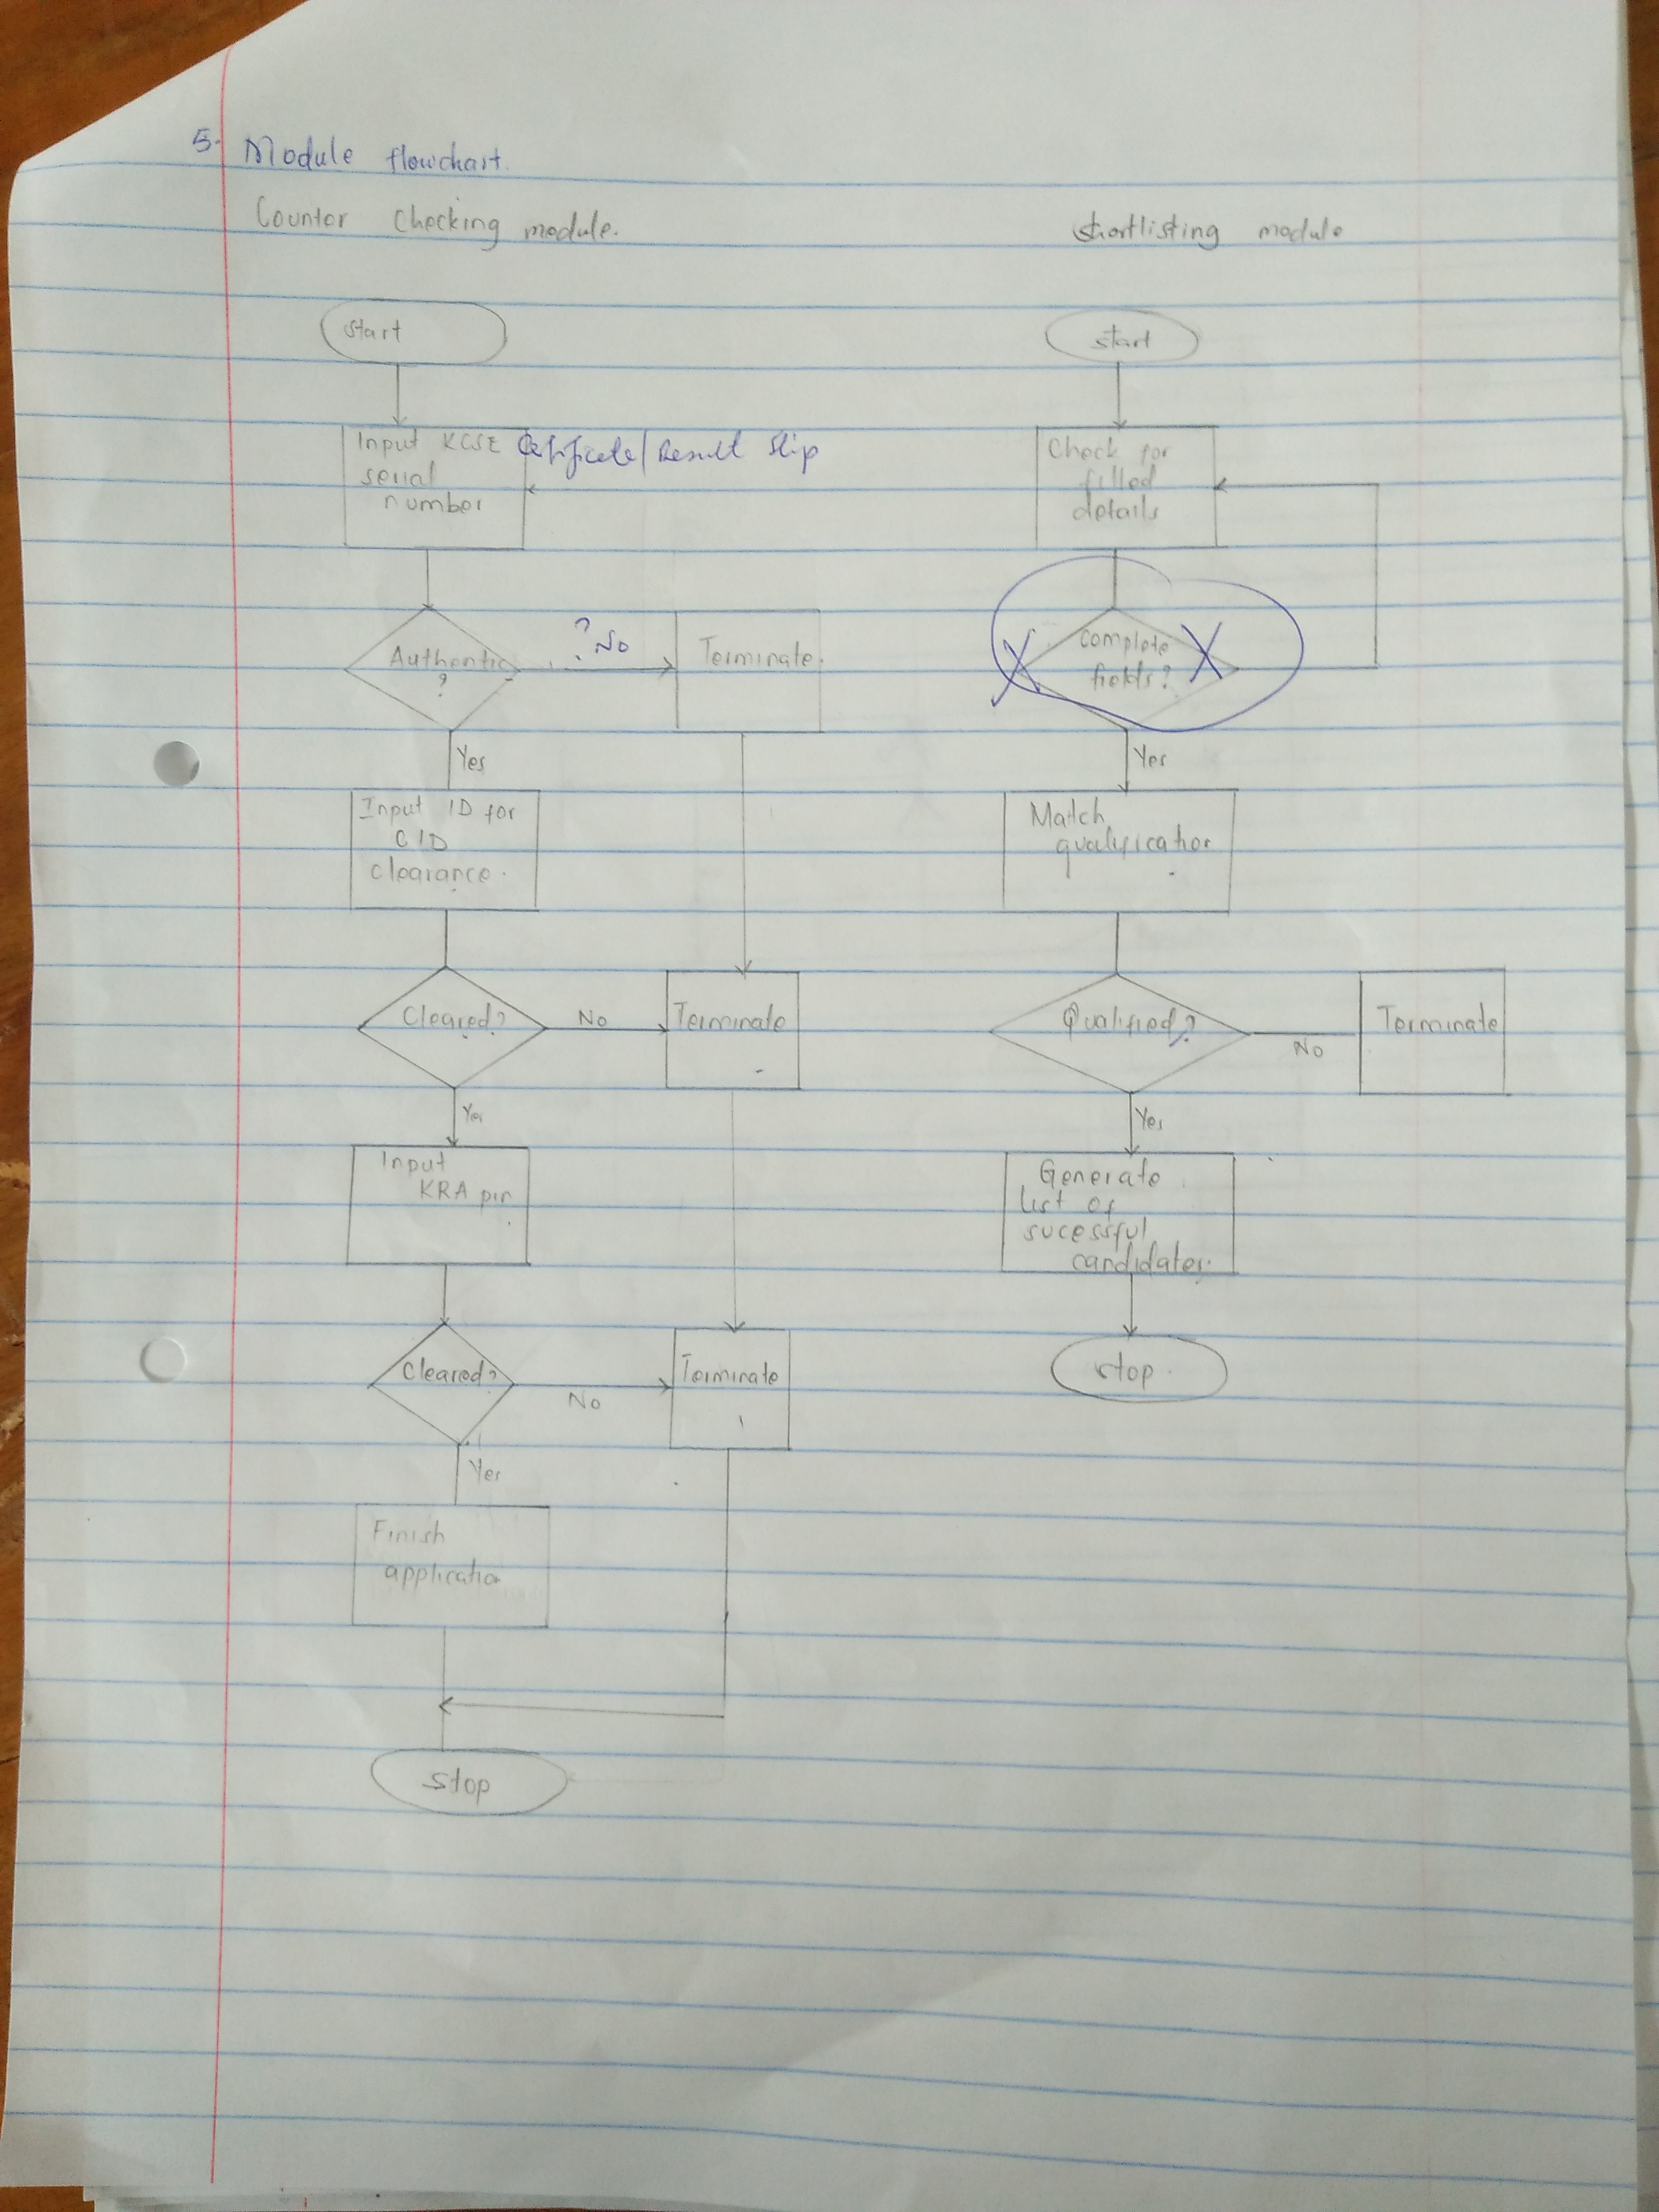 5. Module flowchart.
Counter Checking module.
start
Input KCSE Certificate/Result Slip
serial
number
Authentic
?
? No
Terminate.
Yes
Input ID for
CID
clearance.
Cleared?
No
Terminate
Yes
Input
KRA pin
Cleared?
No
Terminate
Yes
Finish
application
stop
shortlisting module
start
Check for
filled
details
X complete X
fields?
Yes
Match
qualification
Qualified?
No
Terminate
Yes
Generate
list of
sucessful
candidates.
stop.